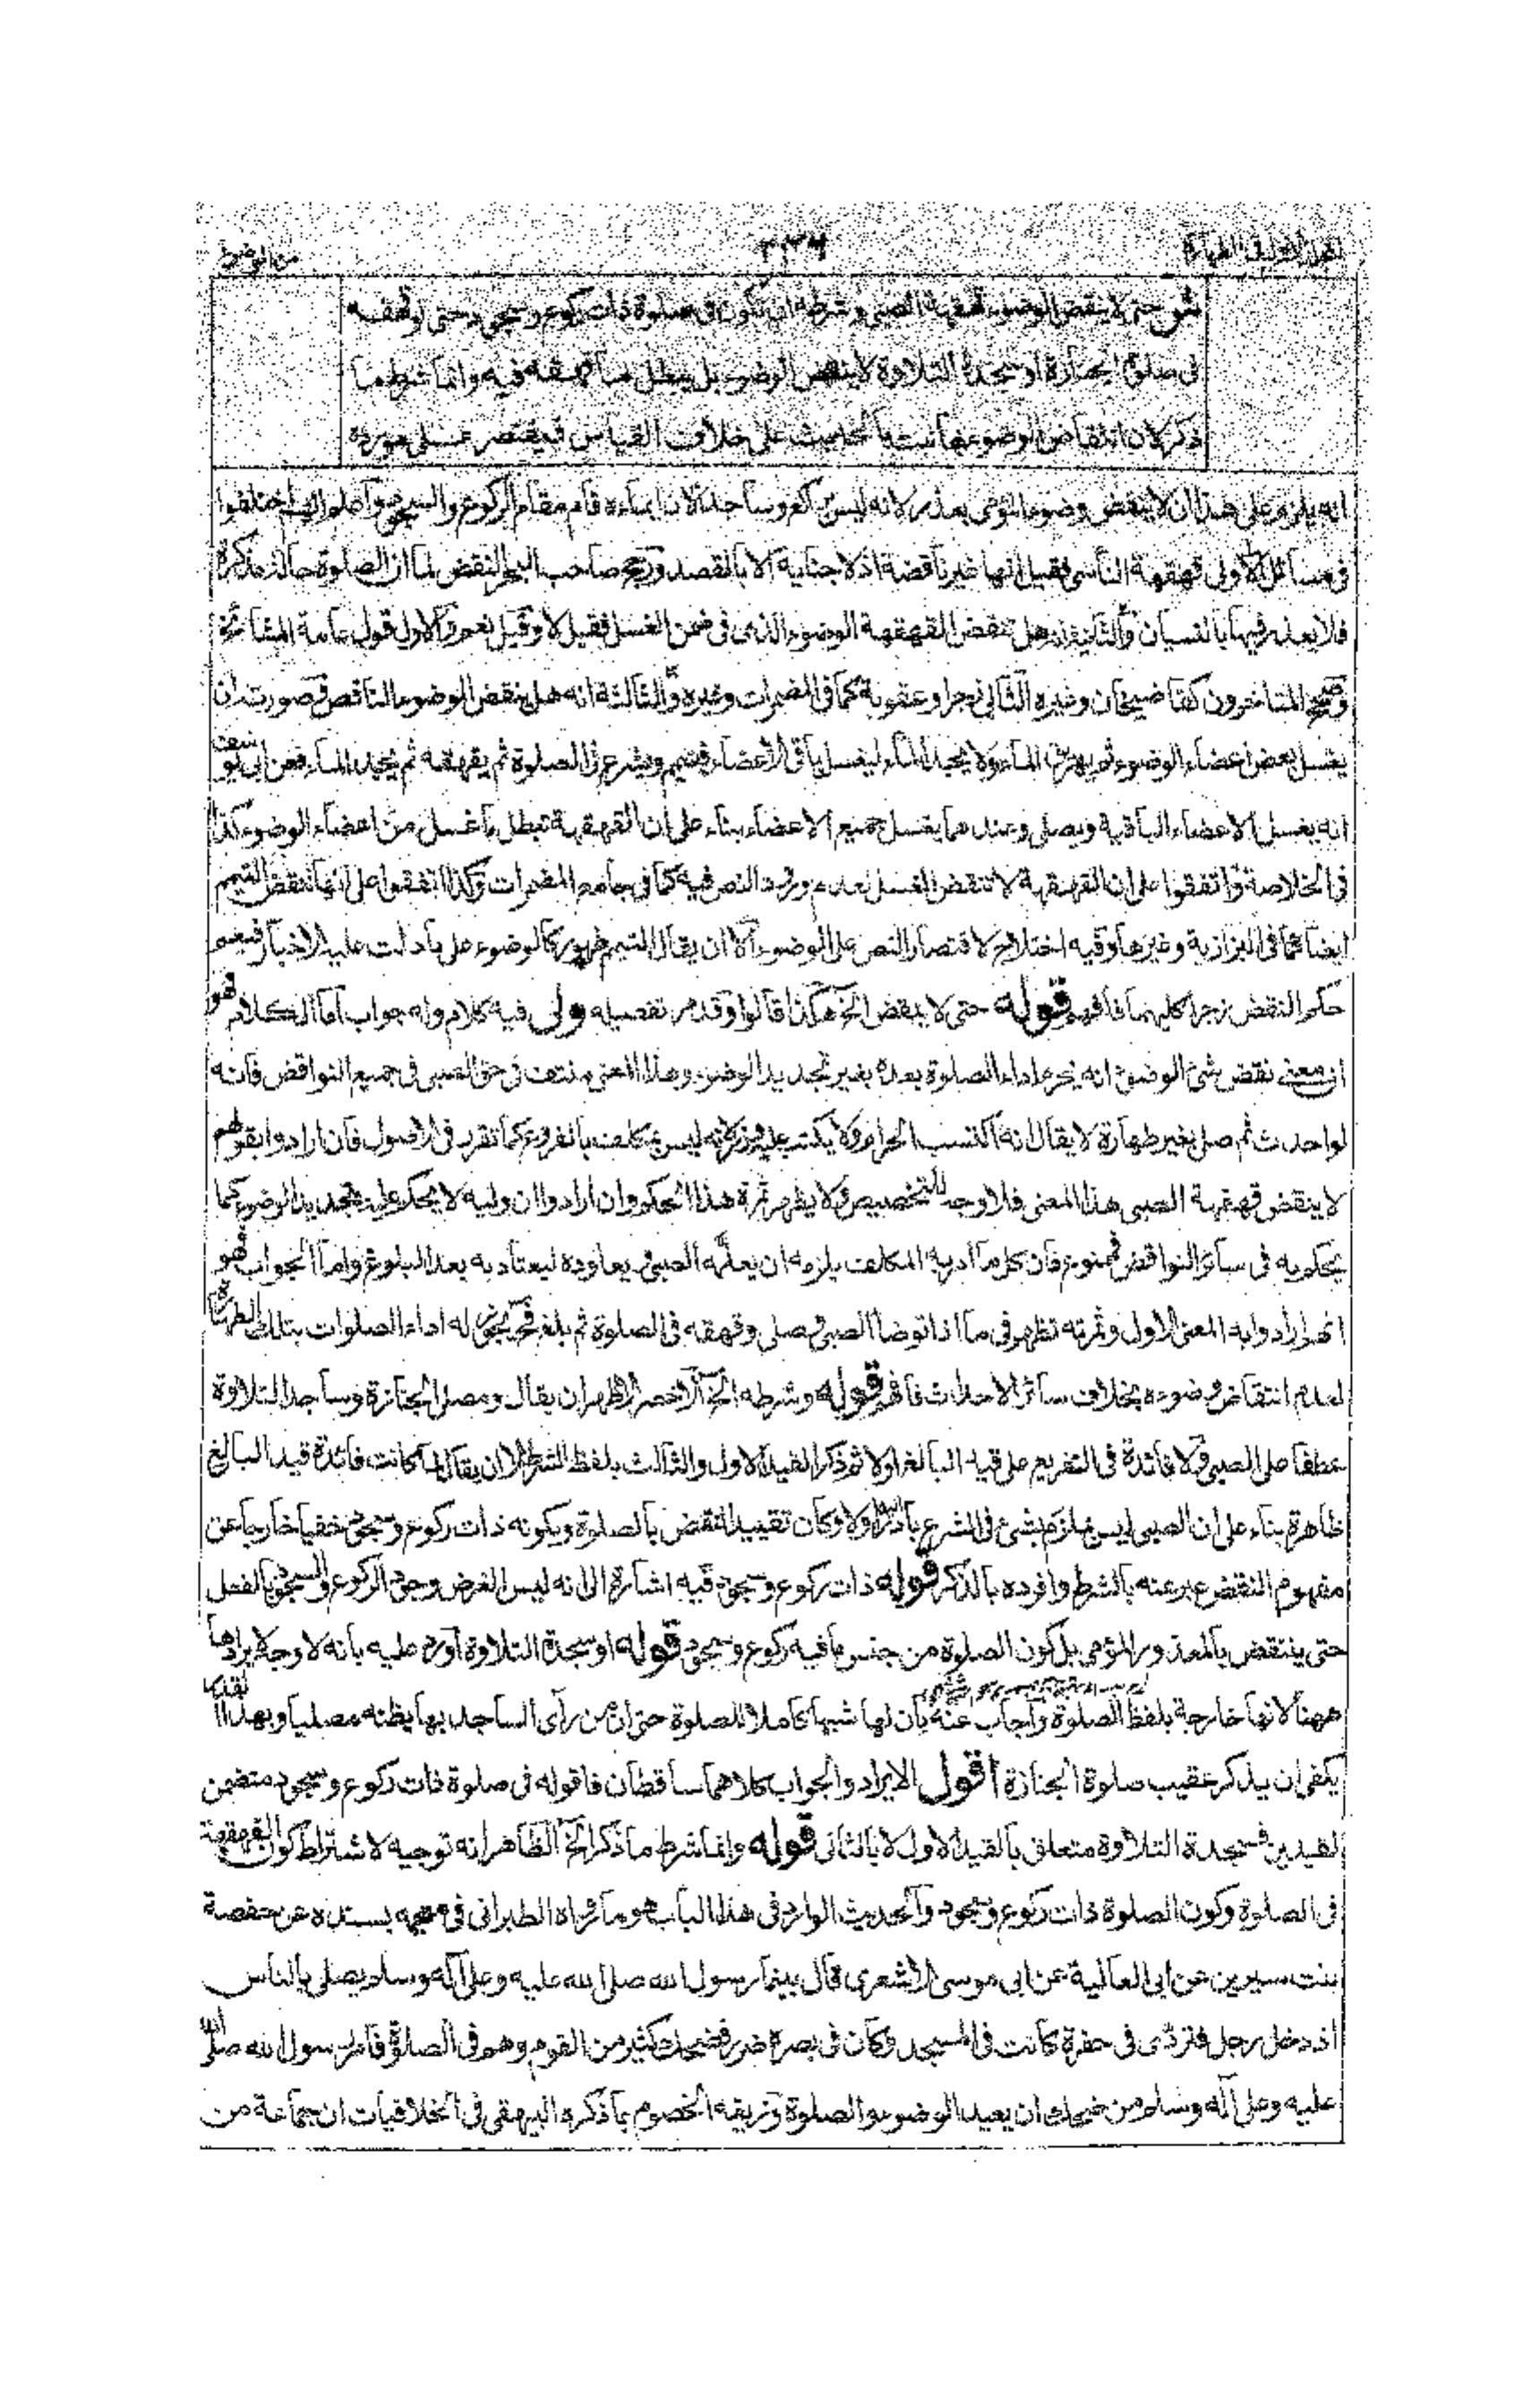 ٢٣٤
حتى لا ينقض الوضوء قهقهة الصبي وشرطه ان تكون في صلوة ذات ركوع وسجود حتى لو قهقه
في صلوة الجنازة او سجدة التلاوة لا ينقض الوضوء بل يبطل ما قهقه فيه وانما شرط ما
ذكر لان انتقاض الوضوء بها ثبت بالحديث على خلاف القياس فيقتصر على مورده
انه يلزم على هذا ان لا ينقض وضوء المؤمى بعذر لانه ليس براكع وساجد لانا ايماءه قام مقام الركوع والسجود واعلم انهم اختلفوا
في مسائل الاولى قهقهة الناسى فقيل انها غير ناقضة اذ لا جناية الا بالقصد ورجح صاحب البحر النقض لما ان الصلوة حالة مذكرة
فلا يعذر فيها بالنسيان والثانية انه هل تنقض القهقهة الوضوء الذي في ضمن الغسل فقيل لا وقيل نعم والاول قول عامة المشائخ
وصحح المتاخرون كقاضيخان وغيره الثاني زجرا وعقوبة كما في المضمرات وغيره والثالثة انه هل ينقض الوضوء الناقص في صورته ان
يغسل بعض اعضاء الوضوء ثم يهريق الماء ولا يجد الماء ليغسل باقي الاعضاء فتيمم وشرع في الصلوة ثم يقهقه ثم يجد الماء فعن ابي يوسف
انه يغسل الاعضاء الباقية ويصلي وعندهما يغسل جميع الاعضاء بناء على ان القهقهة تبطل ما غسل من اعضاء الوضوء كذا
في الخلاصة واتفقوا على ان القهقهة لا تنقض الغسل لعدم ورود النص فيه كما في جامع المضمرات وكذا اتفقوا على انها تنقض التيمم
ايضا كما في البزازية وغيرها وفيه اختلاج لاقتصار النص على الوضوء الا ان يقال التيمم طهور كالوضوء على ما دلت عليه الاخبار فيعم
حكم النقض زجرا كليهما فافهم قوله حتى لا ينقض الخ هكذا قالوا وقد مر تفصيله ولى فيه كلام وله جواب اما الكلام فهو
ان معنى نقض شئ الوضوء انه يحرم اداء الصلوة بعده بغير تجديد الوضوء وهذا المعنى منتف في حق الصبي في جميع النواقض فانه
لو احدث ثم صلى بغير طهارة لا يقال انه اكتسب الحرام ولا يكتب عليه وزر لانه ليس بمكلف بالفروع كما تقرر في الاصول فان ارادوا بقولهم
لا ينقض قهقهة الصبي هذا المعنى فلا وجه للتخصيص ولا يظهر ثمرة هذا الحكم وان ارادوا ان وليه لا يحكم عليه بتجديد الوضوء كما
يحكم به في سائر النواقض فممنوع فان كل ما ادب به المكلف يلزمه ان يعلمه الصبي ويعاوده ليعتاد به بعد البلوغ واما الجواب فهو
انهم ارادوا به المعنى الاول وثمرته تظهر في ما اذا توضأ الصبي فصلى وقهقه في الصلوة ثم بلغ فح يجوز له اداء الصلوات بتلك الطهارة
لعدم انتقاض وضوءه بخلاف سائر الاحداث فافهم قوله وشرطه الخ الاخصر الاظهر ان يقال ومصلى الجنازة وساجد التلاوة
عطفا على الصبي ولا فائدة في التفريع على قيد البالغ اولا ثم ذكر القيد الاول والثالث بلفظ الشرط الا ان يقال لما كانت فائدة قيد البالغ
ظاهرة بناء على ان الصبي ليس بملزم بشئ في الشرع بادائه اولا وكان تقييد النقض بالصلوة وبكونه ذات ركوع وسجود خفيا خارجا عن
مفهوم النقض عبر عنه بالشرط وافرده بالذكر قوله ذات ركوع وسجود فيه اشارة الى انه ليس الغرض وجود الركوع والسجود بالفعل
حتى ينتقض بالمعذور المؤمى بل كون الصلوة من جنس ما فيه ركوع وسجود قوله او سجدة التلاوة اورد عليه بانه لا وجه لايرادها
ههنا لانها خارجة بلفظ الصلوة واجاب عنه بان لها شبها كاملا للصلوة حتى ان من رأى الساجد بها يظنه مصليا وبهذا القدر
يكفي ان يذكر عقيب صلوة الجنازة اقول الايراد والجواب كلاهما ساقطان فان قوله في صلوة ذات ركوع وسجود متضمن
لقيدين فسجدة التلاوة متعلق بالقيد الاول لا بالثاني قوله وانما شرط ما ذكر الخ الظاهر انه توجيه لاشتراط كون القهقهة
في الصلوة وكون الصلوة ذات ركوع وسجود والحديث الوارد في هذا الباب هو ما رواه الطبراني في معجمه بسنده عن حفصة
بنت سيرين عن ابي العالية عن ابي موسى الاشعري قال بينما رسول الله صلى الله عليه وعلى آله وسلم يصلي بالناس
اذ دخل رجل فتردى في حفرة كانت في المسجد وكان في بصره ضرر فضحك كثير من القوم وهم في الصلوة فامر رسول الله صلى الله
عليه وعلى آله وسلم من ضحك ان يعيد الوضوء والصلوة وزيفه الخصوم بما ذكره البيهقي في الخلافيات ان جماعة من